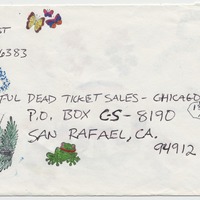 ST
6383
FUL DEAD TICKET SALES - CHICAGO
P.O. BOX CS-8190
SAN RAFAEL, CA.
94912